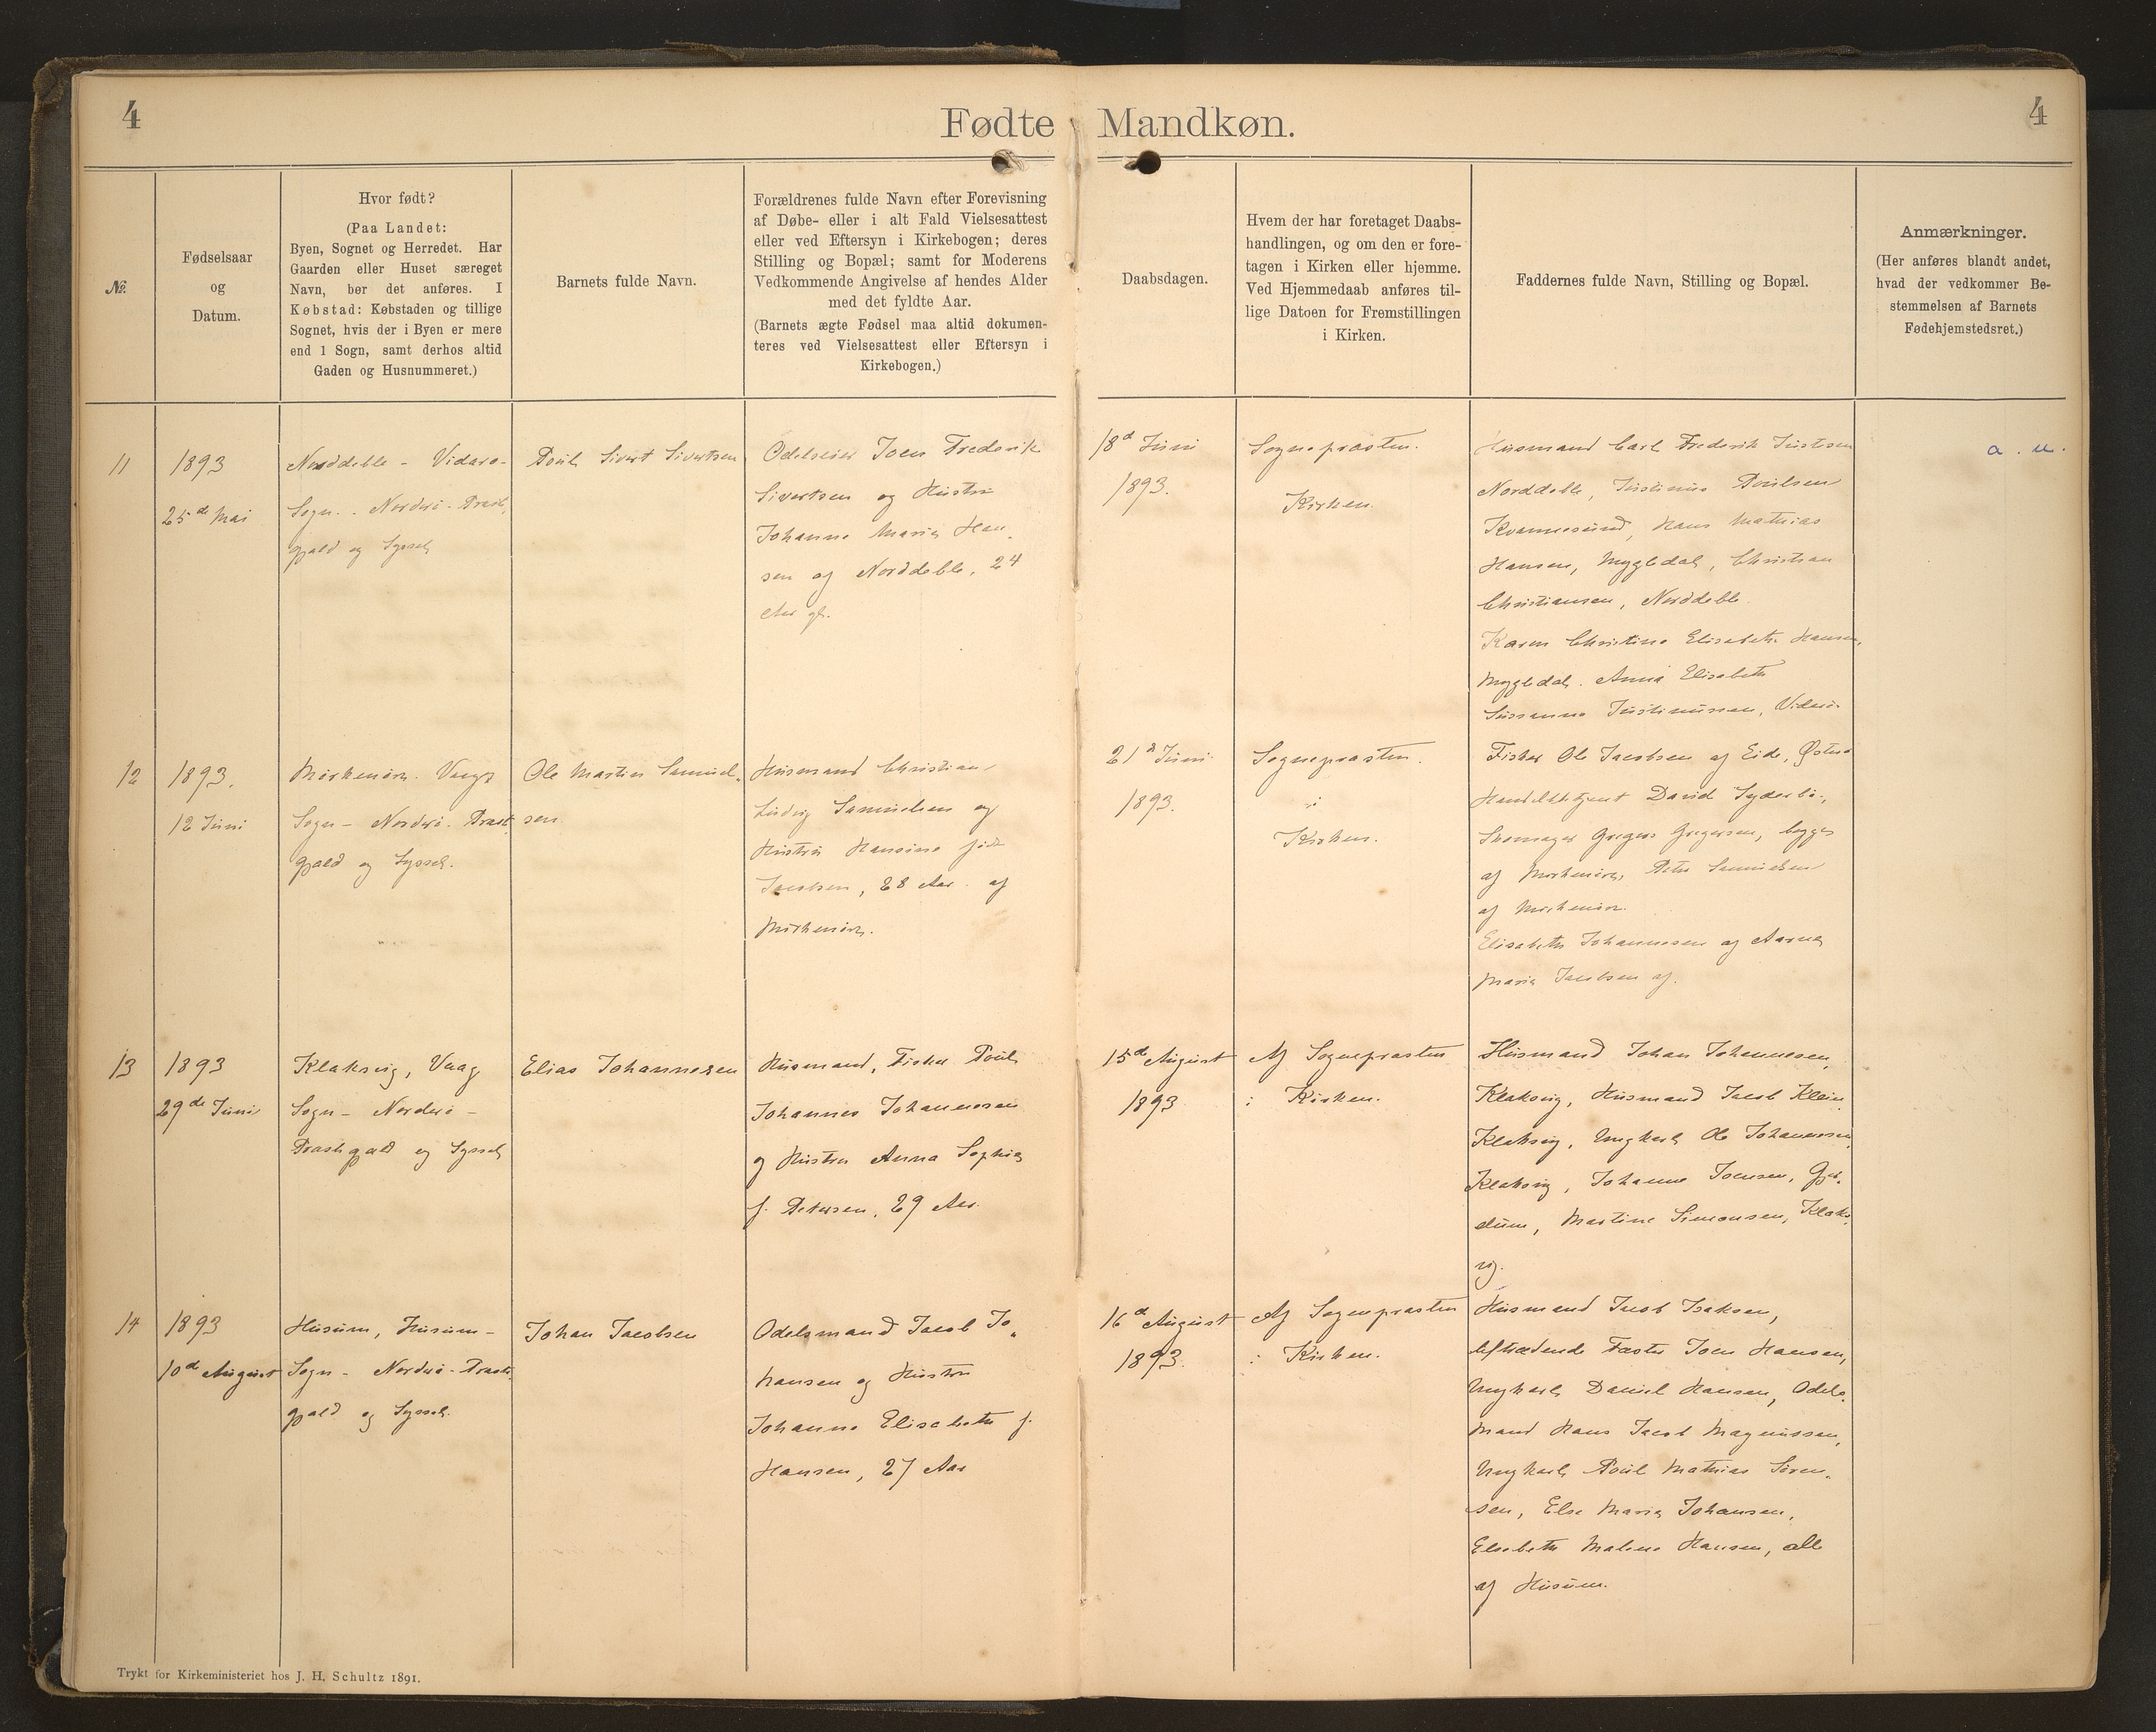 4
Fødte Mandkøn.
4
№.
Fødselsaar
og
Datum.
Hvor født?
(Paa Landet:
Byen, Sognet og Herredet. Har
Gaarden eller Huset særeget
Navn, bør det anføres. I
Købstad: Købstaden og tillige
Sognet, hvis der i Byen er mere
end 1 Sogn, samt derhos altid
Gaden og Husnummeret.)
Barnets fulde Navn.
Forældrenes fulde Navn efter Forevisning
af Døbe- eller i alt Fald Vielsesattest
eller ved Eftersyn i Kirkebogen; deres
Stilling og Bopæl; samt for Moderens
Vedkommende Angivelse af hendes Alder
med det fyldte Aar.
(Barnets ægte Fødsel maa altid dokumen-
teres ved Vielsesattest eller Eftersyn i
Kirkebogen.)
Daabsdagen.
Hvem der har foretaget Daabs-
handlingen, og om den er fore-
tagen i Kirken eller hjemme.
Ved Hjemmedaab anføres til-
lige Datoen for Fremstillingen
i Kirken.
Faddernes fulde Navn, Stilling og Bopæl.
Anmærkninger.
(Her anføres blandt andet,
hvad der vedkommer Be-
stemmelsen af Barnets
Fødehjemstedsret.)
11
1893
25de Mai
Norddeble - Vidarø-
Sogn - Norderø- Præste-
gjæld og Syssel
Poul Sivert Sivertsen
Odelseier Joen Frederik
Sivertsen og Hustru
Johanne Maria Han-
sen af Norddeble, 24
Aar gl.
18d Juni
1893.
Sognepræsten.
Kirken.
Husmand Carl Frederik Justesen
Norddeble, Justinus Poulsen
Kvannesund, Hans Mathias
Hansen, Mygledal, Christian
Christiansen, Norddeble.
Karen Christine Elisabeth Hansen,
Mygledal. Anna Elisabeth
Susanne Justinussen, Viderø.
a. u.
12
1893.
12 Juni
Mørkenøre. Vaags
Sogn - Norderø- Præste
gjæld og Syssel.
Ole Martin Samuel-
sen.
Husmand Christian
Ludvig Samuelsen og
Hustru Hansine født
Jacobsen, 28 Aar. af
Mørkenøre.
21d Juni
1893.
Sognepræsten.
i
Kirken.
Fisker Ole Jacobsen af Eide, Østerø
David Syderbø,
Skomager Gregers Gregersen, begge
af Mørkenøre, Peter Samuelsen
af Mørkenøre.
Elisabeth Johannesen og
Maria Jacobsen af.
13
1893
29de Juni
Klaksvig, Vaag
Sogn - Norderø -
Præstegjæld og Syssel
Elias Johannesen
Husmand, Fisker Poul
Johannes Johannesen
og Hustru Anna Sophia
f. Petersen, 29 Aar.
15de August
1893
Af Sognepræsten
i Kirken.
Husmand Johan Johannesen,
Klaksvig, Husmand Jacob Klein,
Klaksvig, Ungkarl Ole Johannesen,
Klaksvig, Johanne Joensen, Gjer-
dum, Martine Simonsen, Klaks-
vig.
14
1893
10de August
Husum, Husum-
Sogn - Norderø- Præste-
gjæld og Syssel.
Johan Jacobsen
Odelsmand Jacob Jo-
hansen og Hustru
Johanne Elisabeth f.
Hansen, 27 Aar
16d August
1893.
Af Sognepræsten
i Kirken.
Husmand Jacob Isaksen,
Aftrædende Fæster Joen Hansen,
Ungkarl Daniel Hansen, Odels-
mand Hans Jacob Magnussen,
Ungkarl Poul Mathias Søren-
sen, Else Maria Johansen,
Elsebeth Malene Hansen, alle
af Husum.
Trykt for Kirkeministeriet hos J. H. Schultz 1891.